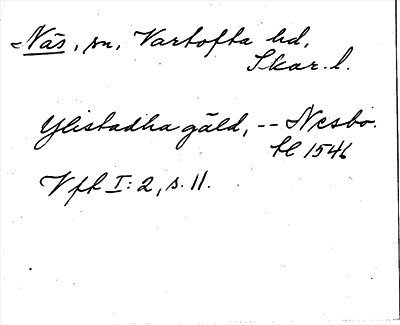 Näs, sn, Vartofta hd,
Skar. l.
Ylistadha gäld, -- Nesbo.
tl 1546
Vfl I: 2, s. 11.